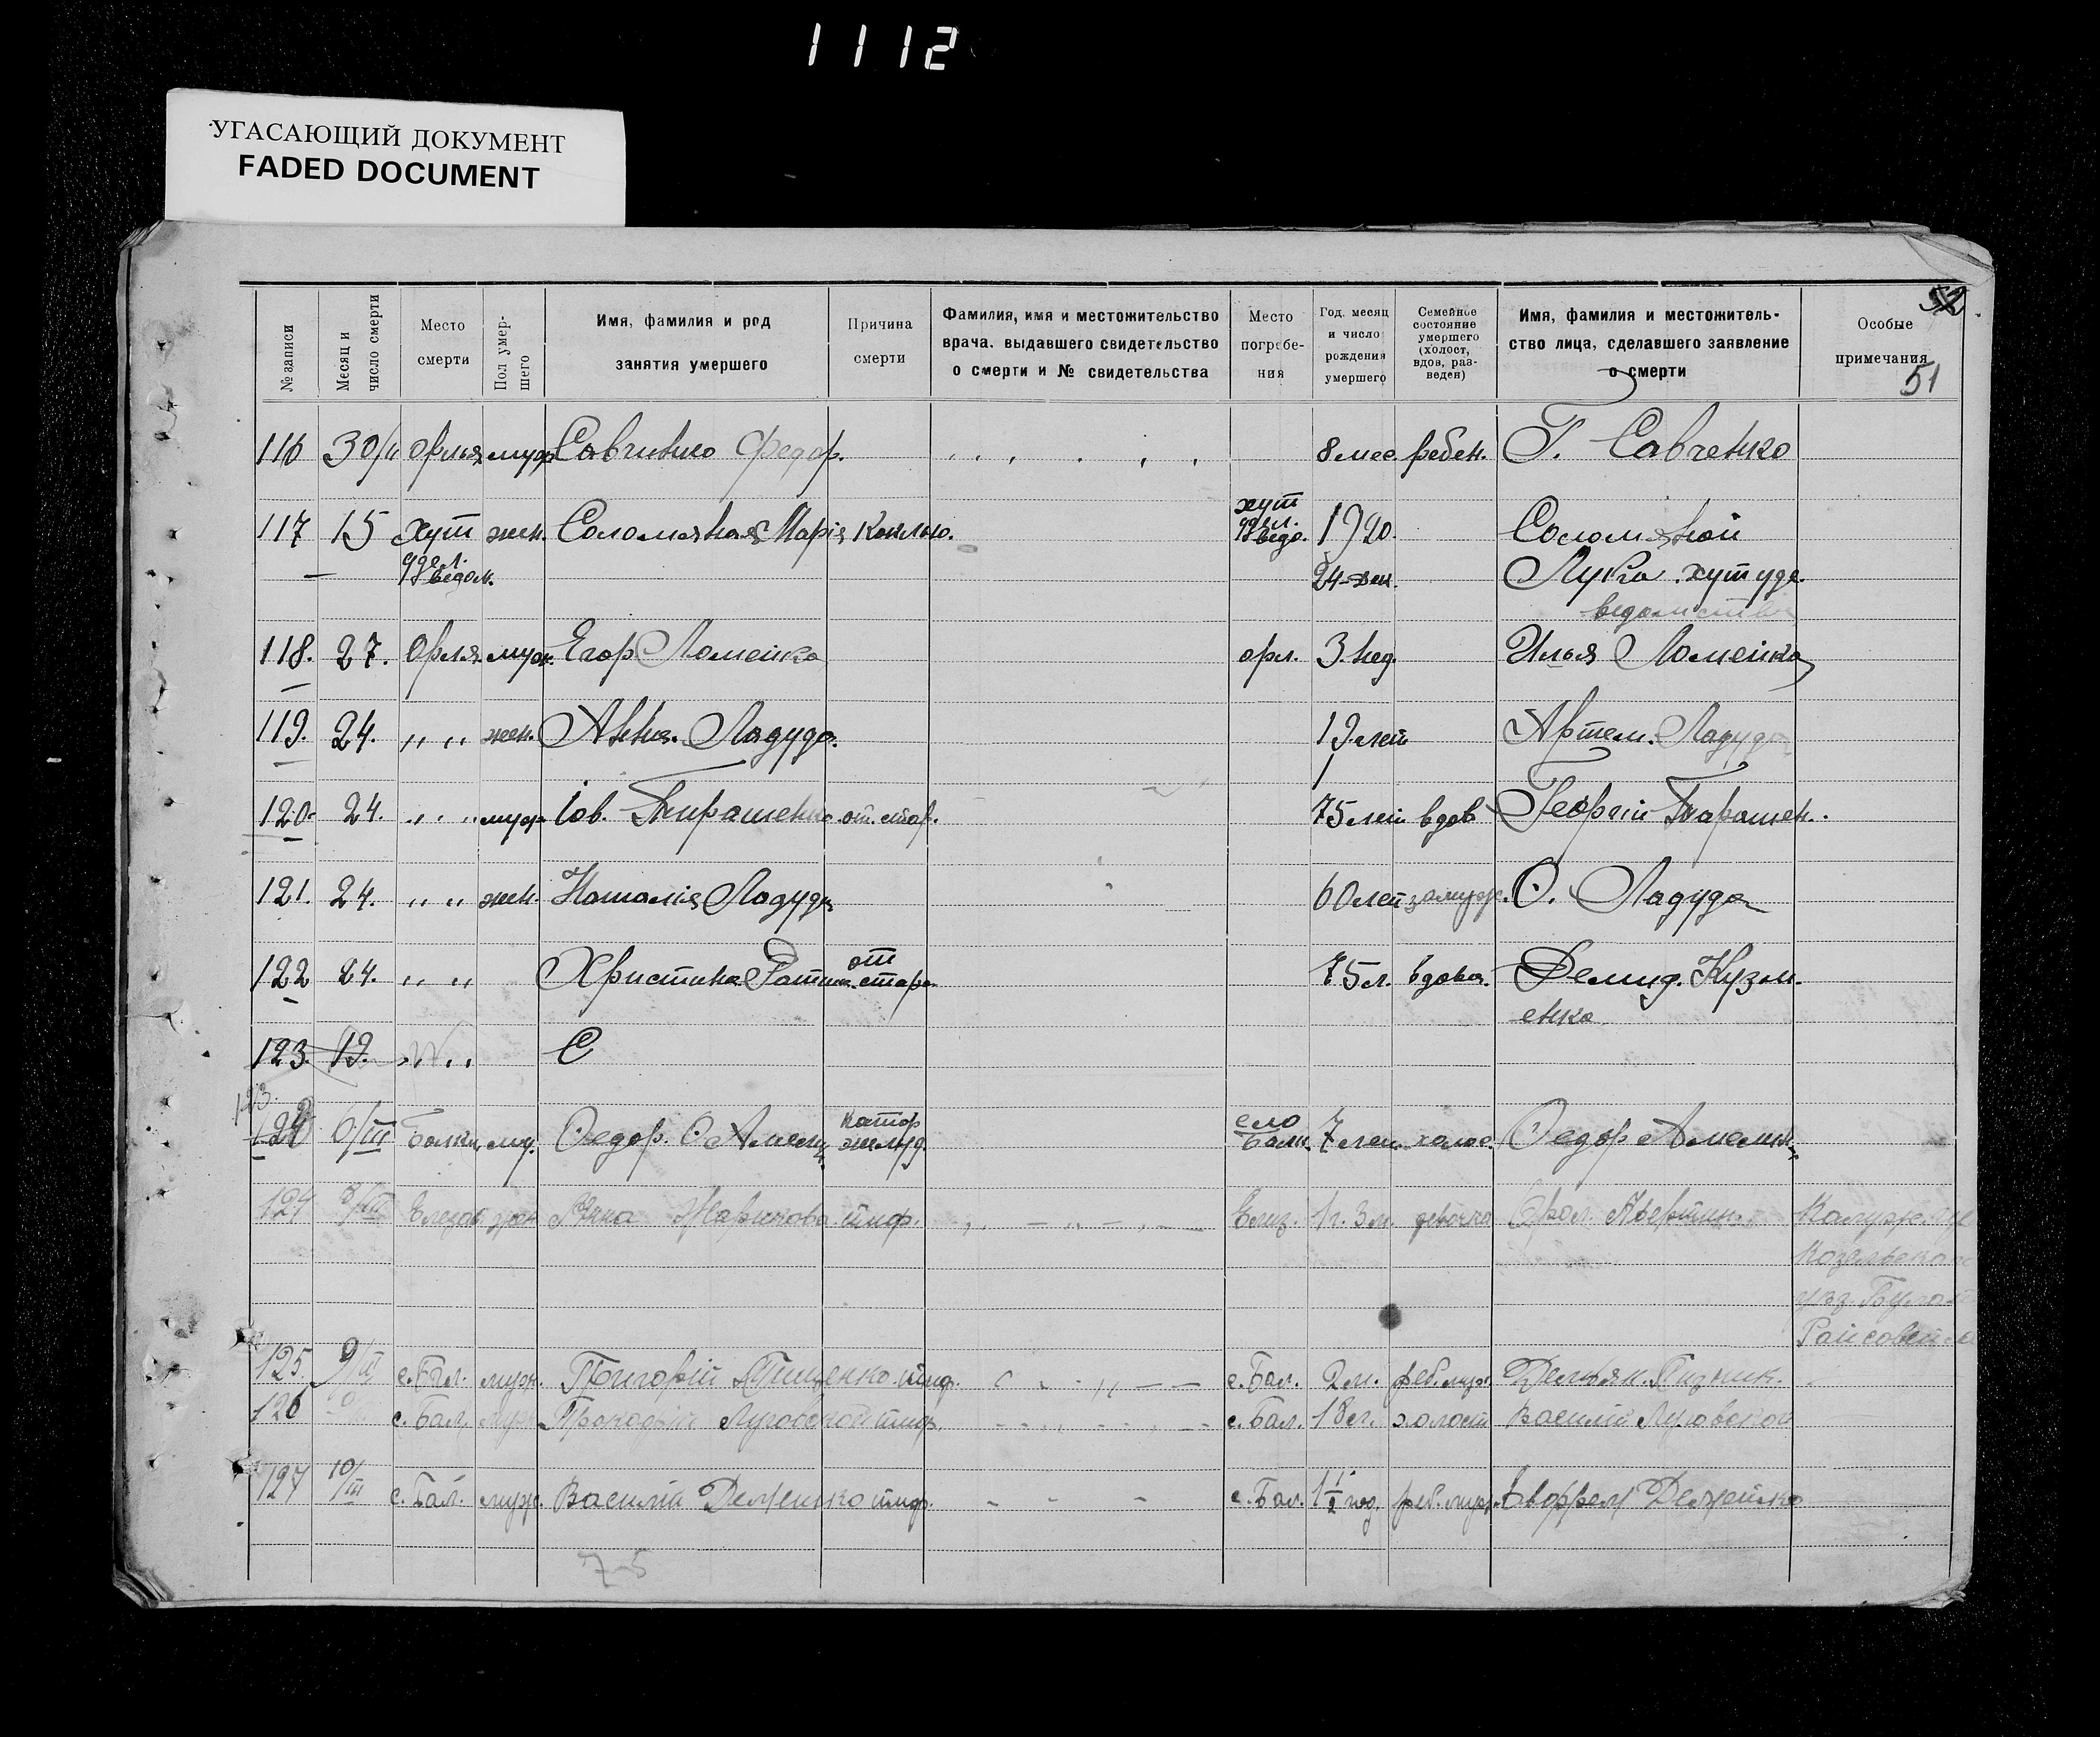 1112
УГАСАЮЩИЙ ДОКУМЕНТ
FADED DOCUMENT
52
51
№ записи
Месяц и число смерти
Место смерти
Пол умершего
Имя, фамилия и род занятия умершего
Причина смерти
Фамилия, имя и местожительство врача, выдавшего свидетельство о смерти и № свидетельства
Место погребения
Год, месяц и число рождения умершего
Семейное состояние умершего (холост, вдов, разведен)
Имя, фамилия и местожительство лица, сделавшего заявление о смерти
Особые примечания
116 30/II Орлян. муж. Савченко Федор. 8 мес. ребен. Г. Савченко
117 15 Хут жен. Соломяная Марія Коклю. хут удел. ведо. 1920. Соломяной
удел. ведом. 24 Лука. хут уде.
ведомства
118. 27. Орля. муж. Егор Ломейко орл. 3. нед. Илья Ломейко
119. 24. " " жен. Анна. Ладуда. 19 лет Артем. Ладуда
120. 24. " " муж. Іов. от. стар. 75 лет вдов Георгій Тарашен.
121. 24. " " жен. Наталія Ладуда 60 лет замуж. О. Ладуда
122 24. " " Христина от стар. 75 л. вдова. Демид. Кузм-
енко
123. 19. " " С
123.
124 6/III Балки му. Федор. катар желуд. село Балк. 7 лет. холос. Федор Амелин
124 8/III жен тиф. Елиз. 1 г. 3 м. девочка Калуж. гу
Козельского
уез.
Райсовет
125. 9/III с. Бал. муж. Григорій тиф. с. Бал. 2 м. реб. муж.
126 с. Бал. муж. Луговской тиф. с. Бал. 18 л. холост Василий Луговской
127 10/III с. Бал. муж. Василий тиф. с. Бал. 1 1/2 год. реб. муж.
7-5